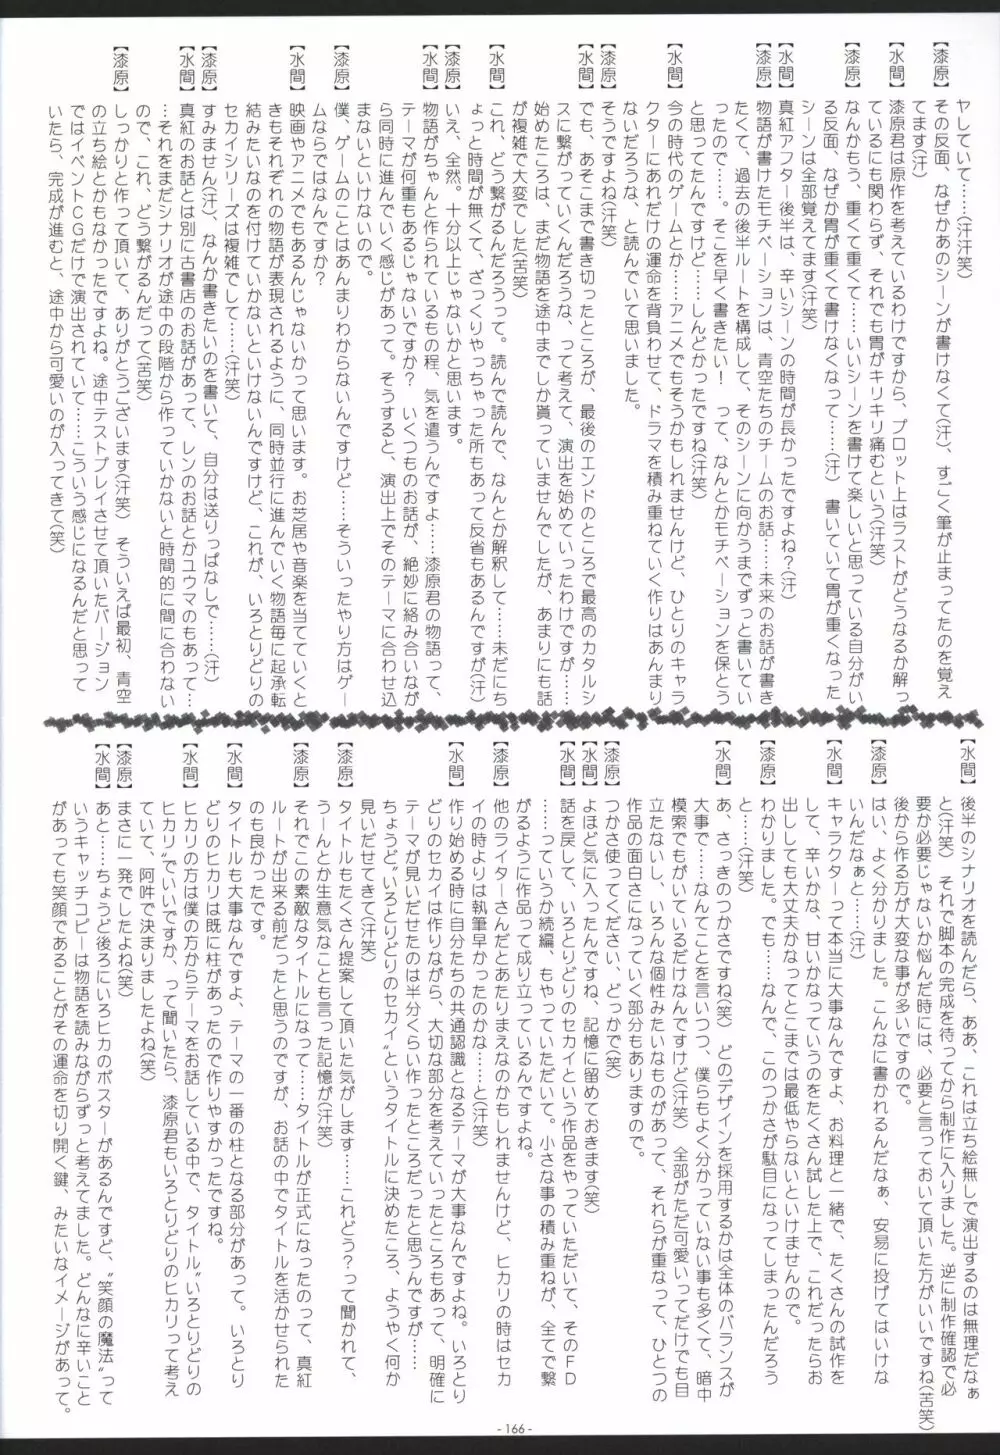 ヤしていて……(汗汗笑)
【漆原】その反面、なぜかあのシーンが書けなくて(汗)、すごく筆が止まってたのを覚え
てます(汗)
【水間】漆原君は原作を考えているわけですから、プロット上はラストがどうなるか解っ
ているにも関わらず、それでも胃がキリキリ痛むという(汗笑)
【漆原】なんかもう、重くて重くて……いいシーンを書けて楽しいと思っている自分がい
る反面、なぜか胃が重くて書けなくなって……(汗) 書いていて胃が重くなった
シーンは全部覚えてます(汗笑)
【水間】真紅アフター後半は、辛いシーンの時間が長かったですよね?(汗)
【漆原】物語が書けたモチベーションは、青空たちのチームのお話……未来のお話が書き
たくて、過去の後半ルートを構成して、そのシーンに向かうまでずっと書いてい
ったので……。そこを早く書きたい! って、なんとかモチベーションを保とう
と思ってたんですけど……しんどかったですね(汗笑)
【水間】今の時代のゲームとか……アニメでもそうかもしれませんけど、ひとりのキャラ
クターにあれだけの運命を背負わせて、ドラマを積み重ねていく作りはあんまり
ないだろうな、と読んでいて思いました。
【漆原】そうですよね(汗笑)
【水間】でも、あそこまで書き切ったところが、最後のエンドのところで最高のカタルシ
スに繋がっていくんだろうな、って考えて、演出を始めていったわけですが……
始めたころは、まだ物語を途中までしか貰っていませんでしたが、あまりにも話
が複雑で大変でした(苦笑)
【水間】これ、どう繋がるんだろうって。読んで読んで、なんとか解釈して……未だにち
ょっと時間が無くて、ざっくりやっちゃった所もあって反省もあるんですが(汗)
【漆原】いえ、全然。十分以上じゃないかと思います。
【水間】物語がちゃんと作られているもの程、気を遣うんですよ……漆原君の物語って、
テーマが何重もあるじゃないですか? いくつものお話が、絶妙に絡み合いなが
ら同時に進んでいく感じがあって。そうすると、演出上でそのテーマに合わせ込
まないといけないので。
【漆原】僕、ゲームのことはあんまりわからないんですけど……そういったやり方はゲー
ムならではなんですか?
【水間】映画やアニメでもあるんじゃないかって思います。お芝居や音楽を当てていくと
きもそれぞれの物語が表現されるように、同時並行に進んでいく物語毎に起承転
結みたいなのを付けていかないといけないんですけど、これが、いろとりどりの
セカイシリーズは複雑でして……(汗笑)
【漆原】すみません(汗)、なんか書きたいのを書いて、自分は送りっぱなしで……(汗)
【水間】真紅のお話とは別に古書店のお話があって、レンのお話とかユウマのもあって…
…それをまだシナリオが途中の段階から作っていかないと時間的に間に合わない
ので、これ、どう繋がるんだって(苦笑)
【漆原】しっかりと作って頂いて、ありがとうございます(汗笑) そういえば最初、青空
の立ち絵とかもなかったですよね。途中テストプレイさせて頂いたバージョン
ではイベントCGだけで演出されていて……こういう感じになるんだと思って
いたら、完成が進むと、途中から可愛いのが入ってきて(笑)
【水間】後半のシナリオを読んだら、ああ、これは立ち絵無しで演出するのは無理だなぁ
と(汗笑) それで脚本の完成を待ってから制作に入りました。逆に制作確認で必
要か必要じゃないか悩んだ時には、必要と言っておいて頂いた方がいいですね(苦笑)
後から作る方が大変な事が多いですので。
【漆原】はい、よく分かりました。こんなに書かれるんだなぁ、安易に投げてはいけな
いんだなぁと……(汗)
【水間】キャラクターって本当に大事なんですよ、お料理と一緒で、たくさんの試作を
して、辛いかな、甘いかなっていうのをたくさん試した上で、これだったらお
出ししても大丈夫かなってとこまでは最低やらないといけませんので。
【漆原】わかりました。でも……なんで、このつかさが駄目になってしまったんだろう
と……(汗笑)
【水間】あ、さっきのつかさですね(笑) どのデザインを採用するかは全体のバランスが
大事で……なんてことを言いつつ、僕らもよく分かっていない事も多くて、暗中
模索でもがいているだけなんですけど(汗笑) 全部がただ可愛いってだけでも目
立たないし、いろんな個性みたいなものがあって、それらが重なって、ひとつの
作品の面白さになっていく部分もありますので。
【漆原】つかさ使ってください、どっかで(笑)
【水間】よほど気に入ったんですね、記憶に留めておきます(笑)
【水間】話を戻して、いろとりどりのセカイという作品をやっていただいて、そのFD
……っていうか続編、もやっていただいて。小さな事の積み重ねが、全てで繋
がるように作品って成り立っているんですよね。
【漆原】他のライターさんだとあたりまえなのかもしれませんけど、ヒカリの時はセカ
イの時よりは執筆早かったのかな……と(汗笑)
【水間】作り始める時に自分たちの共通認識となるテーマが大事なんですよね。いろとり
どりのセカイは作りながら、大切な部分を考えていったところもあって、明確に
テーマが見いだせたのは半分くらい作ったところだったと思うんですが……
ちょうど〝いろとりどりのセカイ〟というタイトルに決めたころ、ようやく何か
見いだせてきて(汗笑)
【漆原】タイトルもたくさん提案して頂いた気がします……これどう?って聞かれて、
うーんとか生意気なことも言った記憶が(汗笑)
【漆原】それでこの素敵なタイトルになって……タイトルが正式になったのって、真紅
ルートが出来る前だったと思うのですが、お話の中でタイトルを活かせられた
のも良かったです。
【水間】タイトルも大事なんですよ、テーマの一番の柱となる部分があって。いろとり
どりのヒカリは既に柱があったので作りやすかったですね。
【水間】ヒカリの方は僕の方からテーマをお話している中で、タイトル〝いろとりどりの
ヒカリ〟でいいですか、って聞いたら、漆原君もいろとりどりのヒカリって考え
ていて、阿吽で決まりましたよね(笑)
【漆原】まさに一発でしたよね(笑)
【水間】あと……ちょうど後ろにいろヒカのポスターがあるんですど、〝笑顔の魔法〟って
いうキャッチコピーは物語を読みながらずっと考えてました。どんなに辛いこと
があっても笑顔であることがその運命を切り開く鍵、みたいなイメージがあって。
- 166 -